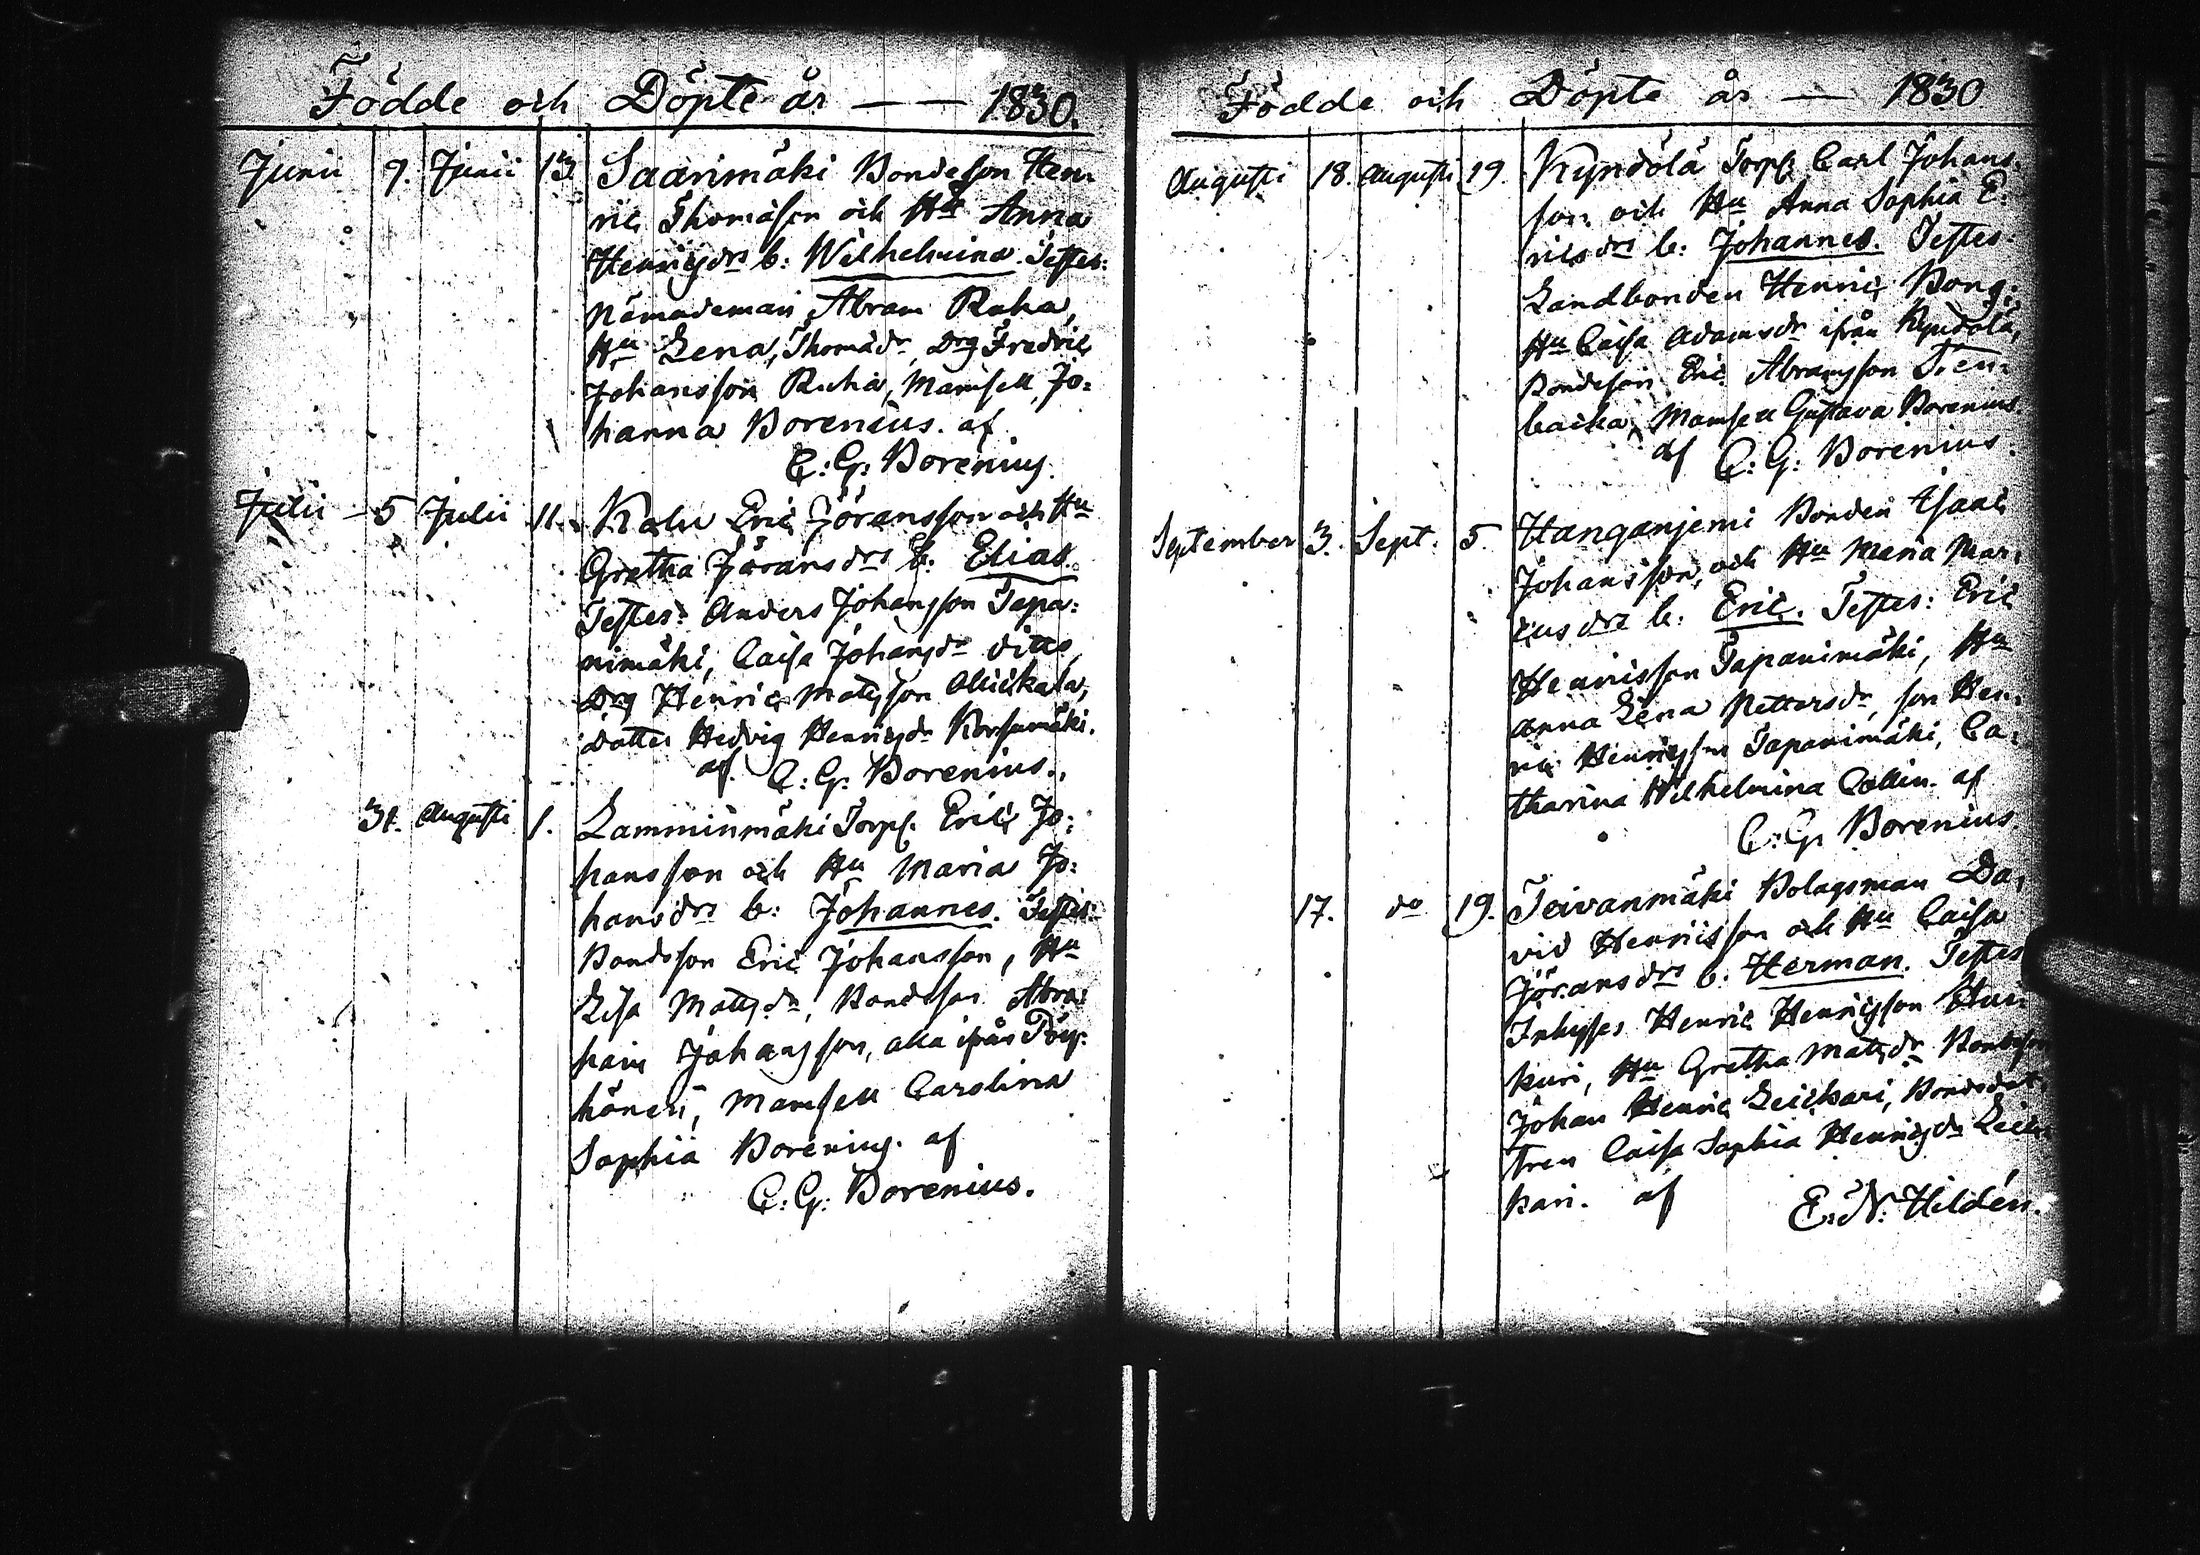 Födde och Döpte år — — 1830.
Junii 9. Junii 13. Saarimäki Bondeson Hen-
ric Thomasson och Hu Anna
Henricsdrs b: Wilhelmina. Testes:
Nämndeman Abram Ruha,
Hu Lena Thomædr, Drg Fredric
Johansson Ruha, Mamsell Jo:
hanna Borenius. af
C: G: Borenius.
Julii 5 Julii 11. Kalu Eric Göransson och Hu
Gretha Göransdrs b: Elias.
Testes: Anders Johansson Tapa:
nimäki, Caisa Johansdr ditto,
Drg Henric Mattsson Allickala,
dotter Hedvig Henricsdr
af C: G: Borenius.
31. Augusti 1. Lamminmäki Torp. Eric Jo:
hansson och Hu Maria Jo:
hansdrs b: Johannes. Testes:
Bondeson Eric Johansson, Hu
Lisa Mattsdr, Bondeson Abra:
ham Johansson, alla ifrån Pöy-
hönen, Mamsell Carolina
Sophia Borenius. af
C: G: Borenius.
Födde och Döpte år — 1830
Augusti 18. Augusti 19. Kyndölä Torp. Carl Johans-
son och Hu Anna Sophia E-
ricsdrs b: Johannes. Testes:
Landbonden Henric Bong,
Hu Caisa Adamsdr ifrån Kyndölä,
Bondeson Eric Abramsson
backa, Mamsell Gustava Borenius.
af C: G: Borenius.
September 3. Sept. 5. Hanganjemi Bonden Isaac
Johansson, och Hu Maria Mar-
cusdrs b: Eric. Testes: Eric
Henricsson Tapanimäki, Hu
Anna Lena Pettersdr, son Hen-
ric Henricsson Tapanimäki, Ca-
tharina Wilhelmina Collin. af
C: G. Borenius.
17. do 19. Teivanmäki Bolagsman Da-
vid Henricsson och Hu Caisa
Göransdrs b: Herman. Testes
Inhyses Henric Henricsson
kuri, Hu Gretha Mattsdr Bondeson
Johan Henric Leickari, Bondedot
tren Caisa Sophia Henricsdr Leic-
kari. af E: N: Hildén.